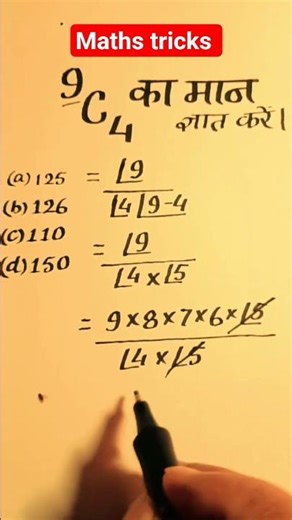 Maths tricks
⁹C₄ का मान
ज्ञात करें।
(a) 125
(b) 126
(c) 110
(d) 150
= ⌊9 / ⌊4 ⌊9-4
= ⌊9 / ⌊4 × ⌊5
= 9×8×7×6×⌊5 / ⌊4 × ⌊5